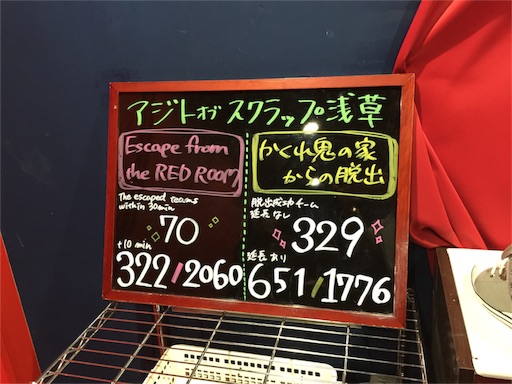 アジトオブスクラップ浅草
Escape from
the RED ROOM
The escaped teams
within 30min
70
+10 min
322/2060
かくれ鬼の家
からの脱出
脱出成功チーム
延長なし
329
延長あり
651/1776